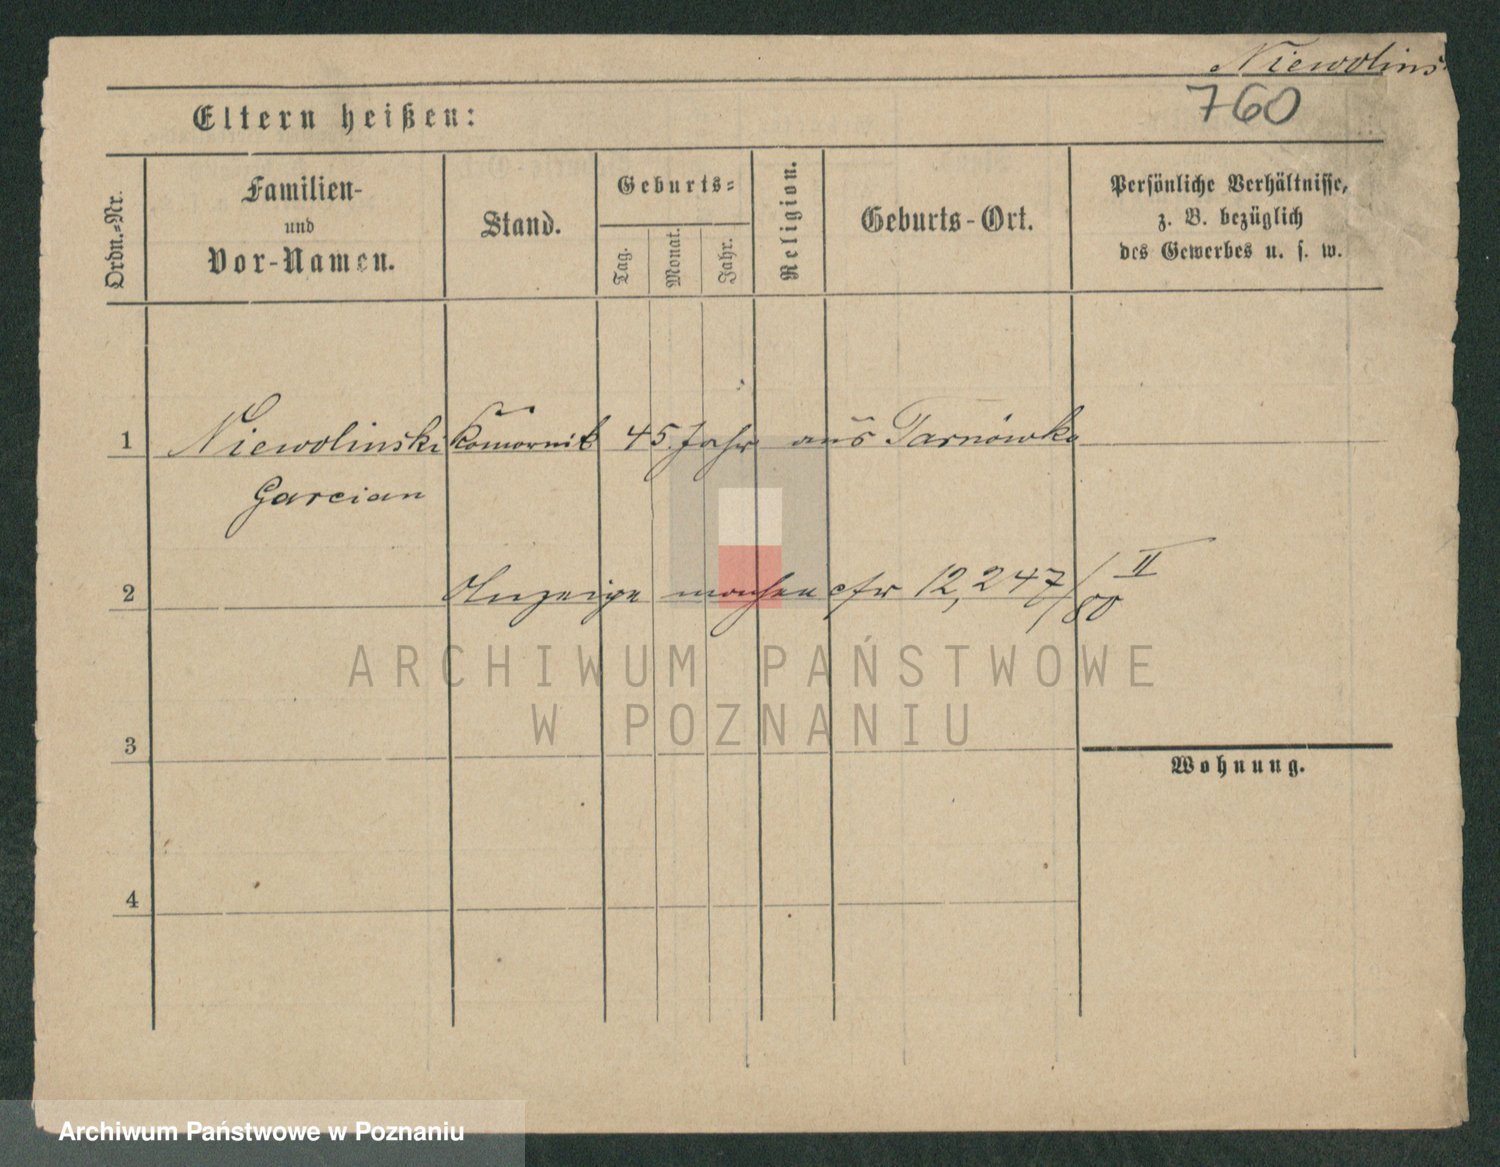 Niewolins
760
Eltern heißen:
Ordn.-Nr.
Familien-
und
Vor-Namen.
Stand.
Geburts-
Tag.
Monat.
Jahr.
Religion.
Geburts-Ort.
Persönliche Verhältnisse,
z. B. bezüglich
des Gewerbes u. s. w.
1 Niewolinski Komornik 45 Jahr aus Tarnówka
Garcian
2 Anzeige machen cfr 12,247/II 80
ARCHIWUM PAŃSTWOWE
W POZNANIU
3
Wohnung.
4
Archiwum Państwowe w Poznaniu